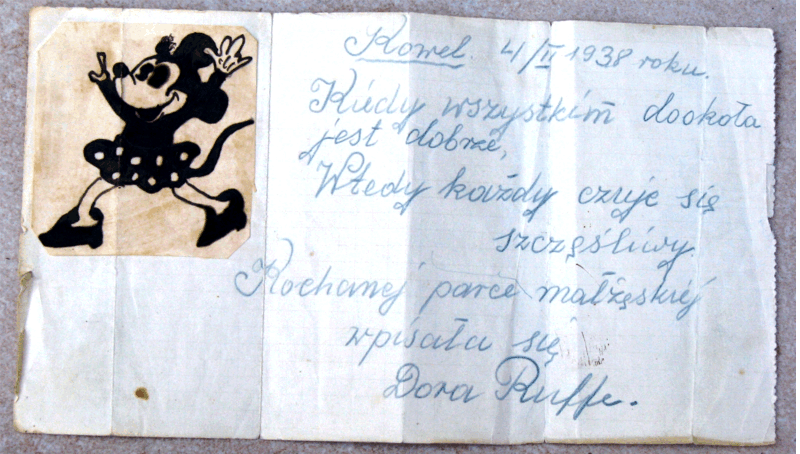 Kowel. 4/II 1938 roku.
Kiedy wszystkim dookoła
jest dobrze,
Wtedy każdy czuje się
szczęśliwy.
Kochanej parce małżęskiej
wpisała się
Dora Ruffe.